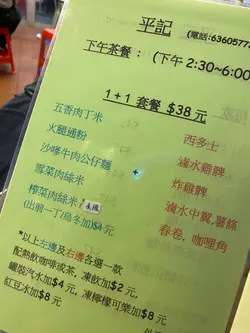 平記
(電話:6360577
下午茶餐： (下午 2:30~6:00
1+1 套餐 $38 元
五香肉丁米
火腿通粉
沙嗲牛肉公仔麵
雪菜肉絲米
榨菜肉絲米
(出前一丁/烏冬加$4 元
+
西多士
滷水雞髀
炸雞髀
滷水中翼,薯條
春卷, 咖哩角
*以上左邊及右邊各選一款
配熱飲咖啡或茶, 凍飲加$2 元,
罐裝汽水加$4 元, 凍檸檬可樂加$8 元,
紅豆冰加$8 元